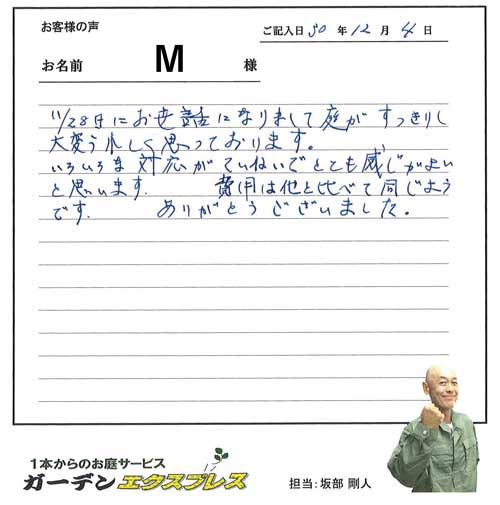 お客様の声
ご記入日 30 年 12 月 4 日
お名前 M 様
11/28日にお世話になりまして庭がすっきりし
大変うれしく思っております。
いろいろな対応がていねいでとても感じがよい
と思います。 費用は他と比べて同じよう
です。 ありがとうございました。
1本からのお庭サービス
ガーデンエクスプレス
担当:坂部 剛人